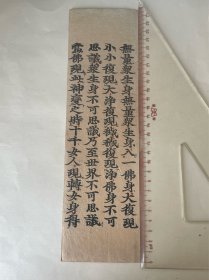 無量眾生身無量眾生身入一佛身大復現
小小復現大淨復現穢穢復現淨佛身不可
思議眾生身不可思議乃至世界不可思議
當佛現此神變之時十千女人現轉女身得